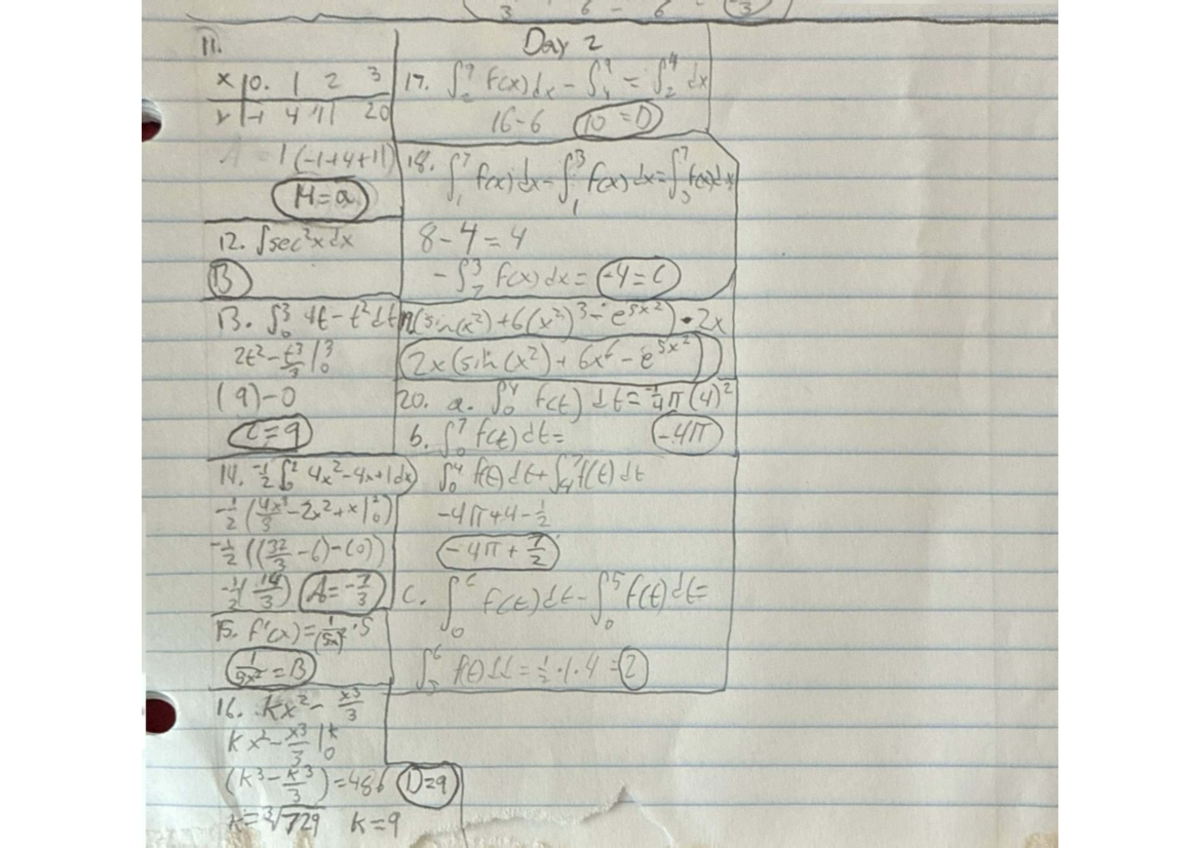 3 6 - 6 3
11.
x | 0. 1 2 3
y | -1 4 11 20
1(-1+4+11)
14=a
12. ∫sec²x dx
B
13. ∫₀³ 4t-t² dt
2t²-t³/3 |₀³
(9)-0
C=9
14. -1/2 ∫₀² 4x²-4x+1 dx
-1/2 (4x³/3-2x²+x|₀²)
-1/2 ((32/3-6)-(0))
-1/2(14/3) A=-7/3
15. f'(x)=1/(5x)²·5
1/5x²=B
16. kx²-x³/3
kx²-x³/3 |₀ᵏ
(k³-k³/3)=486 D=9
k=∛729 k=9
Day 2
17. ∫₂⁹ f(x)dx-∫₄⁹=∫₂⁴ dx
16-6 10=D
18. ∫₁⁷ f(x)dx-∫₁³ f(x)dx=∫₃⁷ f(x)dx
8-4=4
-∫₇³ f(x)dx= -4=C
(sin(x²)+6(x²)³-e^5x²)·2x
2x(sin(x²)+6x⁶-e^5x²)
20. a. ∫₀⁴ f(t) dt=-1/4π(4)²
-4π
b. ∫₀⁷ f(t)dt=
∫₀⁴ f(t)dt+∫₄⁷ f(t)dt
-4π+4-1/2
-4π+7/2
C. ∫₀⁶ f(t)dt-∫₀⁵ f(t)dt=
∫₅⁶ f(t)dt=1/2·1·4=2